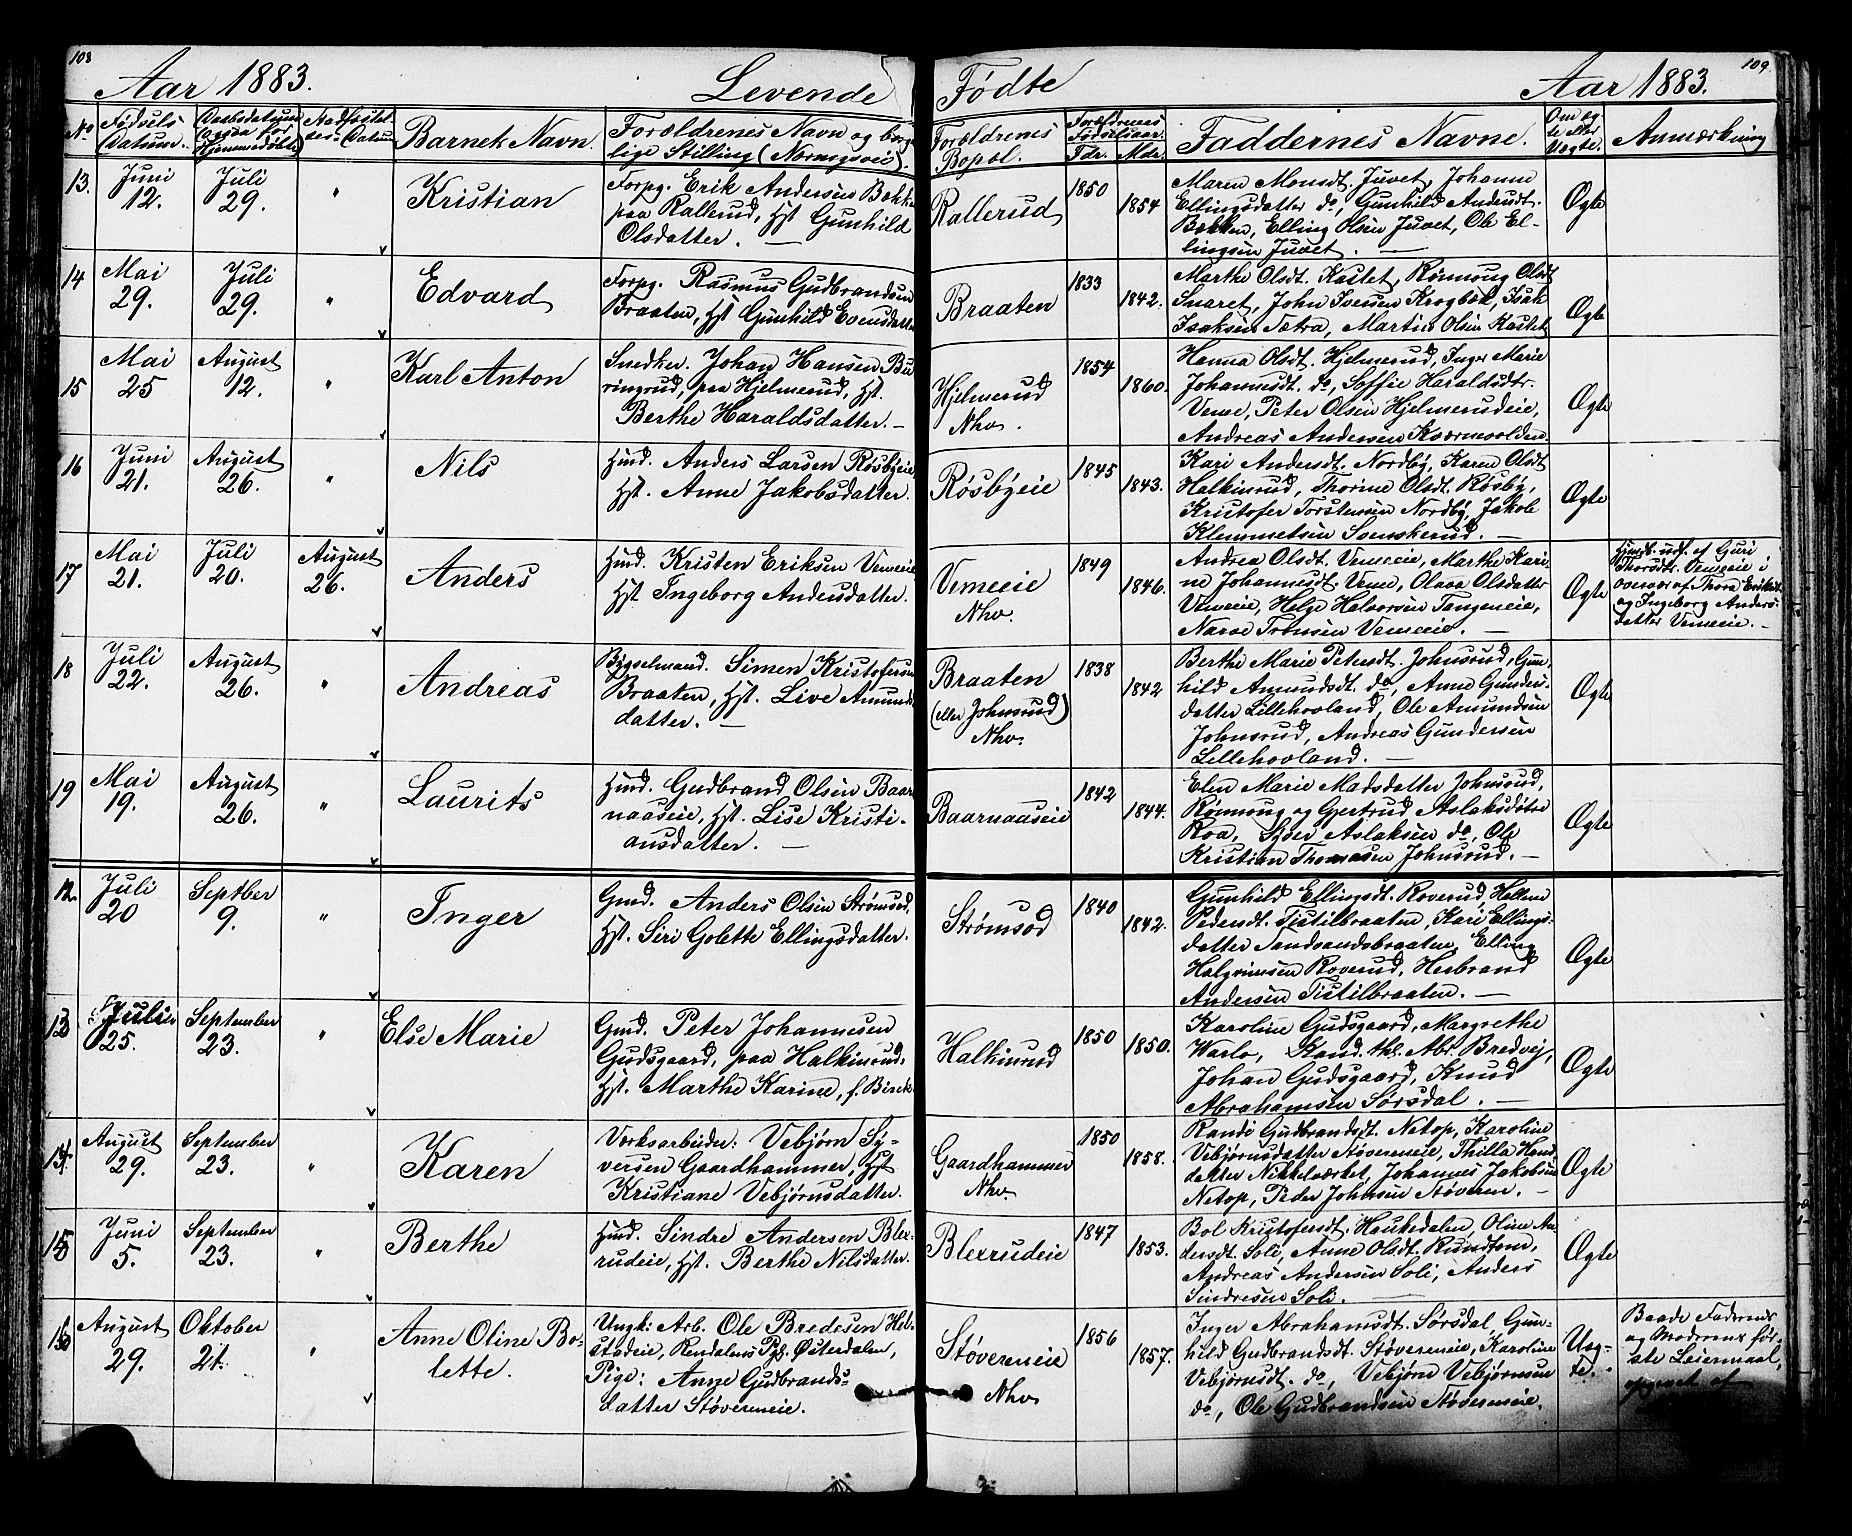 108
109
Aar 1883.
Levende
Fødte
Aar 1883.
No
Fødsels Datum.
Daabsdatum (ogsaa for Hjemmedøbte)
Stadfæstel- ses-Datum
Barnets Navn.
Forældrenes Navn og borger- lige Stilling (Næringsvei).
Forældrenes Bopæl.
Forældrenes Fødselsaar. Fdr. Mdr.
Faddernes Navne.
Om æg- te eller Uægte.
Anmærkning
13.
Juni 12.
Juli 29.
"
Kristian
Forpg. Erik Andersen Bekken
paa Rallerud, Hst. Gunhild
Olsdatter.
Rallerud
1850
1854
Maren Monsdt. Juvet, Johanne
Ellingsdatter do, Gunhild Andersdt.
Bækken, Elling Olsen Juvet, Ole El-
lingsen Juvet.
Ægte
14
Mai 29.
Juli 29.
"
Edvard
Forpg. Rasmus Gudbrandsen
Braaten, Hst Gunhild Evensdatter
Braaten
1833
1842.
Marthe Olsdt. Kastet, Rønnoug Olsdt
Snaret, John Iversen Krogbæk, Isak
Isaksen Tætra, Martin Olsen Kastet
Ægte
15
Mai 25
August 12.
"
Karl Anton
Snedker. Johan Hansen Bu-
ringrud, paa Hjelmerud, Hst.
Berthe Haraldsdatter.
Hjelmerud
Nhv.
1854
1860.
Hanna Olsdt. Hjelmerud, Inger Marie
Johannesdt. do, Soffie Haraldsdtr.
Veme, Peter Olsen Hjelmerudeie,
Andreas Andersen Kværnvolden
Ægte
16
Juni 21.
August 26.
"
Nils
Hmd. Anders Larsen Røsbyeie,
Hst. Anne Jakobsdatter.
Røsbyeie
1845
1843.
Kari Andersdt. Nordby, Karen Olsdt
Halkinrud, Thorine Olsdt. Røsby,
Kristofer Torstensen Nordby, Jakob
Klemmetsen Svenskerud.
Ægte
17
Mai 21.
Juli 20.
August 26.
Anders
Hmd. Kristen Eriksen Vemeeie
Hst Ingeborg Andersdatter.
Vemeeie
Nhv.
1849
1846.
Andrea Olsdt. Vemeeie, Marthe Kari-
ne Johannesdt. Veme, Olava Olsdatter
Vemeeie, Helge Halvorsen Tangeneie,
Narve Trønsen Vemeeie.
Ægte
Hjmdt. udf. af Guri
Thorsdt. Vemeeie i
overvær af Thora Eriksdt.
og Ingeborg Anders-
datter Vemeeie.
18
Juli 22.
August 26.
"
Andreas
Bygselmand. Simen Kristofersen
Braaten, Hst. Live Amunds-
datter.
Braaten
(eller Johnsrud)
Nhv.
1838
1842
Berthe Marie Petersdt. Johnsrud, Gun-
hild Amundsdt. do, Anne Gunders-
datter Lillehovland, Ole Amundsen
Johnsrud, Andreas Gundersen
Lillehovland.
Ægte
19
Mai 19.
August 26.
"
Laurits
Hmd. Gudbrand Olsen Baar-
naaseie, Hst. Lise Kristi-
ansdatter.
Baarnaaseie
1842
1844.
Elen Marie Madsdatter Johnsrud,
Rønnoug og Gjertrud Aslaksdøtre
Roa, Syver Aslaksen do, Ole
Kristian Thomasen Johnsrud.
Ægte
12
Juli 20
Septber 9.
"
Inger
Gmd. Anders Olsen Strømsod,
Hst. Siri Golette Ellingsdatter.
Strømsod
1840
1842.
Gunhild Ellingsdt. Roverud, Hellene
Pedersdt. Tistilbraaten, Kari Ellings-
datter Sandsandsbraaten, Elling
Halgrimsen Roverud, Herbrand
Andersen Tistilbraaten.
Ægte
13
Juli 25.
September 23.
"
Else Marie
Gmd. Peter Johannesen
Gudsgaard, paa Halkinrud,
Hst. Marthe Karine, f. Birck
Halkinrud
1850
1850.
Karoline Gudsgaard, Margrethe
Warlo, Kand. thl. Abr. Bredvej,
Johan Gudsgaard, Knud
Abrahamsen Sørsdal.
Ægte
14
August 29.
September 23.
"
Karen
Værksarbeider: Vebjørn Sy-
versen Gaardhammer, Hst
Kristiane Vebjørnsdatter.
Gaardhammer
Nhv
1850
1858.
Randi Gudbrandsdt. Netop, Karoline
Vebjørnsdatter Støvereneie, Thilla Hans-
datter Nikkelværket, Johannes Jakobsen
Netop, Peder Johnsen Støveren.
Ægte
15
Juni 5.
September 23.
"
Berthe
Hmd. Sindre Andersen Blex-
rudeie, Hst. Berthe Nilsdatter.
Blexrudeie
1847
1853.
Bol Kristofersdt. Haukedalen, Oline An-
dersdt. Soli, Anne Olsdt. Rundtom,
Andreas Andersen Soli, Anders
Sindresen Soli.
Ægte
16
August 29.
Oktober 21.
"
Anne Oline Bo-
lette.
Ungk: Arb. Ole Bredesen Hel-
stadeie, Rendalens Pgd. Østerdalen,
Pige: Anne Gudbrands-
datter Støvereneie.
Støvereneie
Nhv
1856
1857.
Inger Abrahamsdt. Sørsdal, Gun-
hild Gudbrandsdt. Støvereneie, Karoline
Vebjørnsdt. do, Vebjørn Vebjørnsen
do, Ole Gudbrandsen Støvereneie.
Uæg-
te.
Baade Faderens
og Moderens før-
ste Leiermaal,
opgivet af